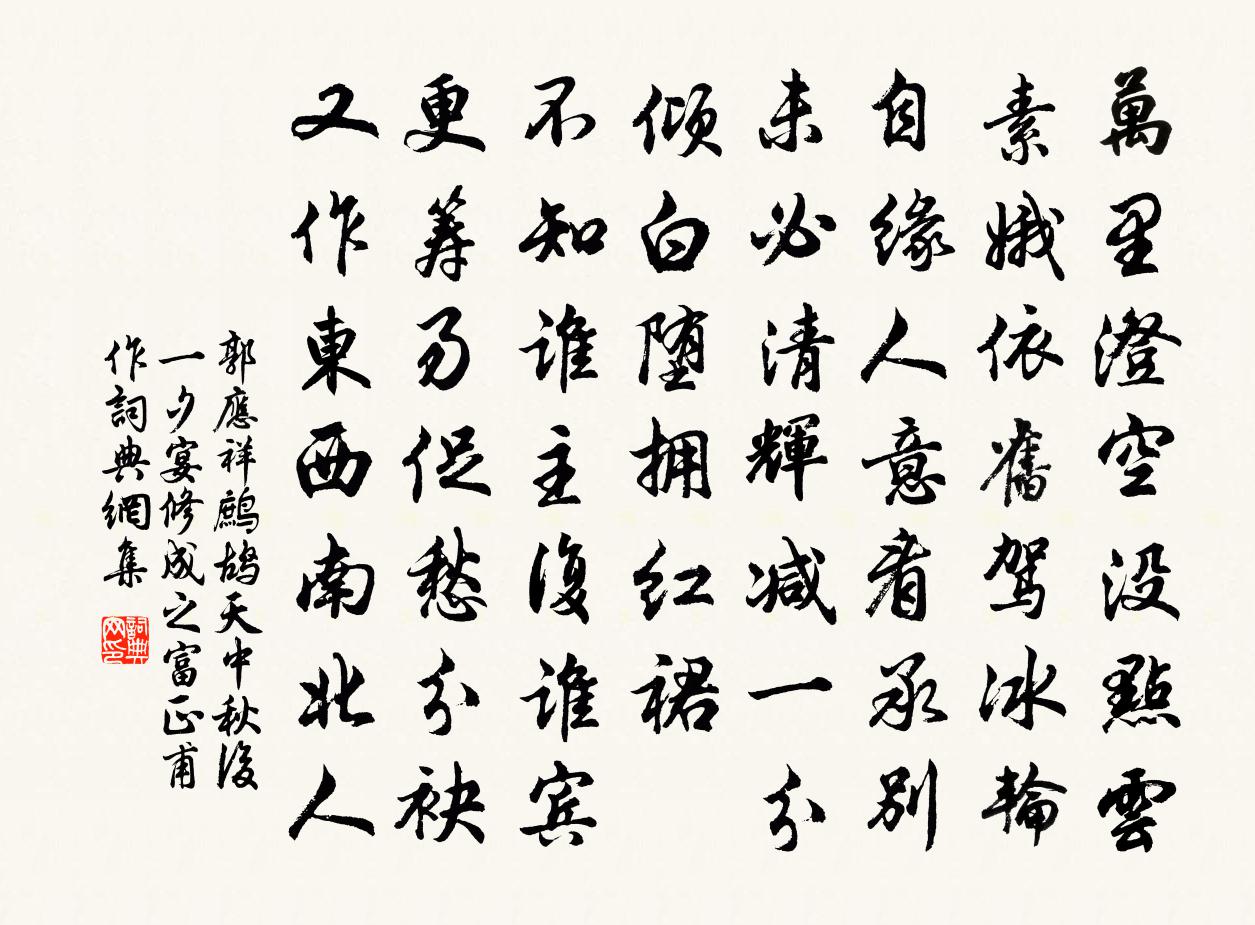 萬里澄空没點雲
素娥依舊駕冰輪
自緣人意看承別
未必清輝減一分
傾白堕拥红裙
不知谁主復谁宾
更筹易促愁分袂
又作東西南北人
郭應祥鷓鴣天中秋後
一夕宴修成之富正甫
作詞典網集
詞典网印